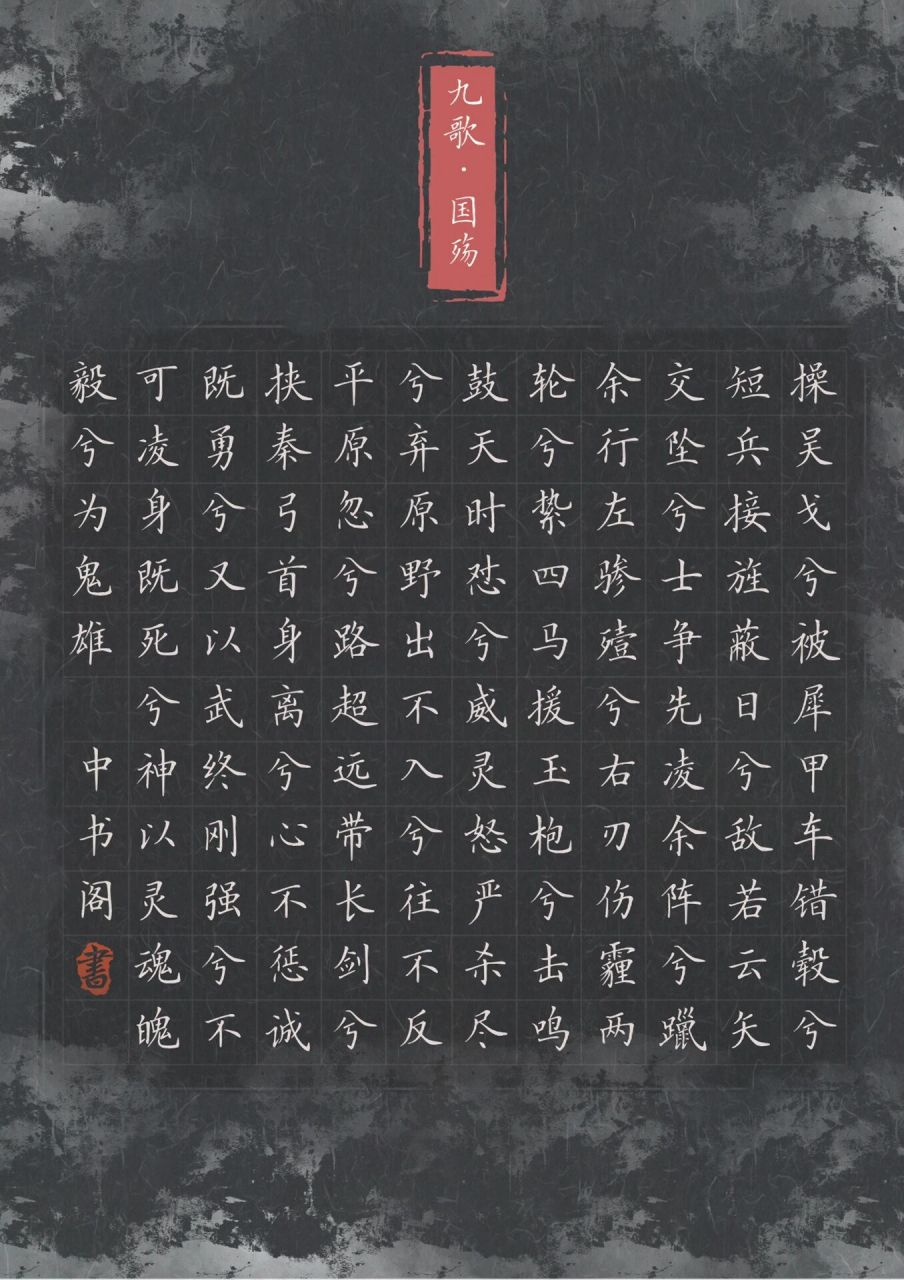 九歌·国殇
操吴戈兮被犀甲车错毂兮
短兵接旌蔽日兮敌若云矢
交坠兮士争先凌余阵兮躐
余行左骖殪兮右刃伤霾两
轮兮絷四马援玉枹兮击鸣
鼓天时怼兮威灵怒严杀尽
兮弃原野出不入兮往不反
平原忽兮路超远带长剑兮
挟秦弓首身离兮心不惩诚
既勇兮又以武终刚强兮不
可凌身既死兮神以灵魂魄
毅兮为鬼雄 中书阁
書